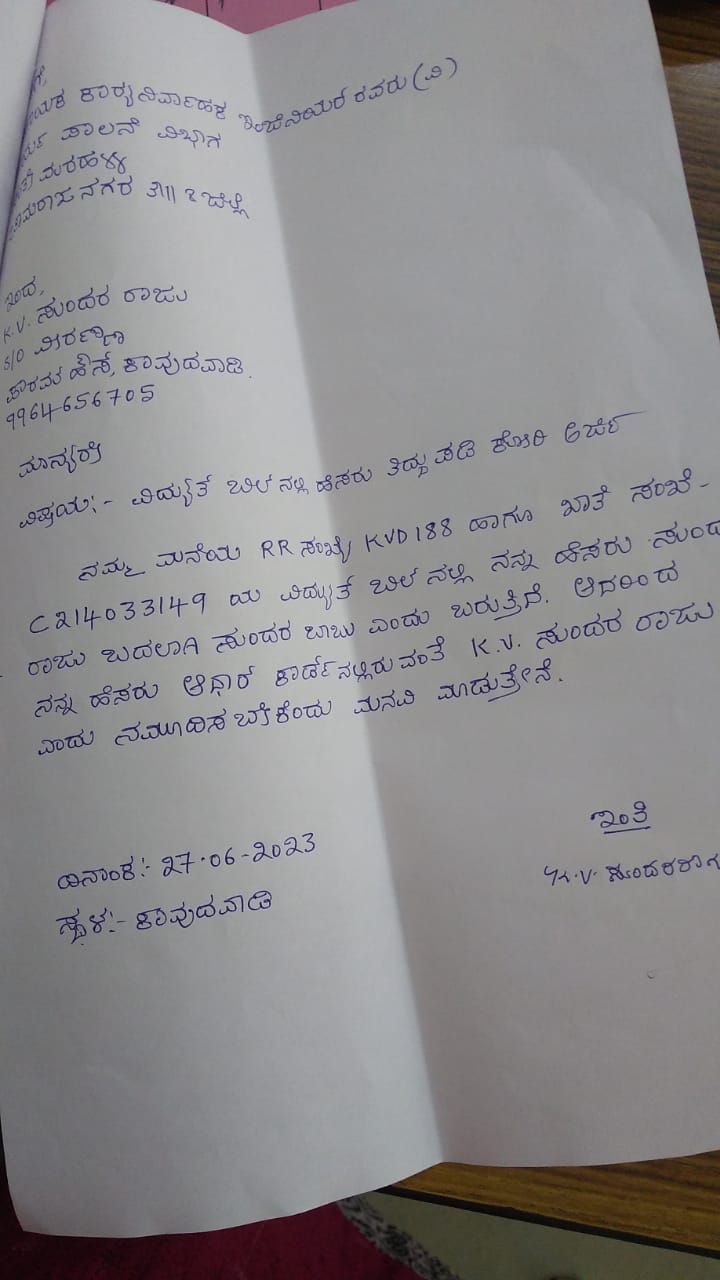 ಗೆ,
ಕಾರ್ಯನಿರ್ವಾಹಕ ಇಂಜಿನಿಯರ್ ರವರು (ವಿ)
ಪಾಲನೆ ವಿಭಾಗ
ನಗರ ಜಿಲ್ಲೆ
ಇಂದ,
K.V. ಸುಂದರ ರಾಜು
S/O ವೀರಣ್ಣಾ
ಹೌಸ್, ಕಾವುದವಾಡಿ.
9964656705
ಮಾನ್ಯರೇ
ವಿಷಯ:- ವಿದ್ಯುತ್ ಬಿಲ್ ನಲ್ಲಿ ಹೆಸರು ತಿದ್ದುಪಡಿ ಕೋರಿ ಅರ್ಜಿ
ನಮ್ಮ ಮನೆಯ RR ಸಂಖ್ಯೆ KVD 188 ಹಾಗೂ ಖಾತೆ ಸಂಖ್ಯೆ -
C214033149 ಯ ವಿದ್ಯುತ್ ಬಿಲ್ ನಲ್ಲಿ ನನ್ನ ಹೆಸರು ಸುಂದ
ರಾಜು ಬದಲಾಗಿ ಸುಂದರ ಬಾಬು ಎಂದು ಬರುತ್ತಿದೆ. ಆದರಿಂದ
ನನ್ನ ಹೆಸರು ಆಧಾರ್ ಕಾರ್ಡ್ ನಲ್ಲಿರುವಂತೆ K.V. ಸುಂದರ ರಾಜು
ಎಂದು ನಮೂದಿಸಬೇಕೆಂದು ಮನವಿ ಮಾಡುತ್ತೇನೆ.
ಇಂತಿ
K.V. ಸುಂದರರಾಜ
ದಿನಾಂಕ:- 27-06-2023
ಸ್ಥಳ:- ಕಾವುದವಾಡಿ